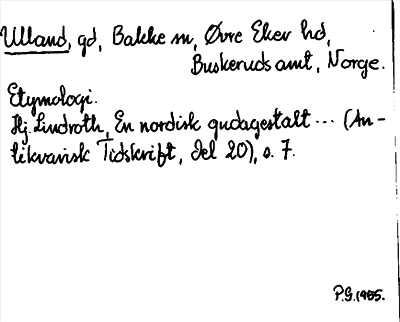 Ulland, gd, Bakke sn, Øvre Eker hd,
Buskeruds amt, Norge.
Etymologi.
Hj. Lindroth, En nordisk gudagestalt ... (An-
tikvarisk Tidskrift, del 20), s. 7.
P.G. 1985.